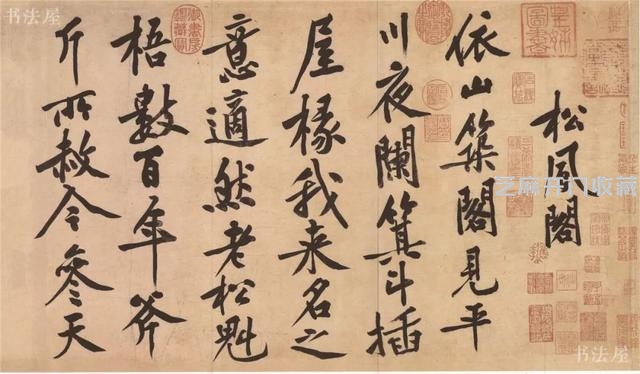 松風閣
依山築閣見平
川夜闌箕斗插
屋椽我来名之
意適然老松魁
梧數百年斧
斤所赦令參天
书法屋
芝麻开门收藏
书法屋